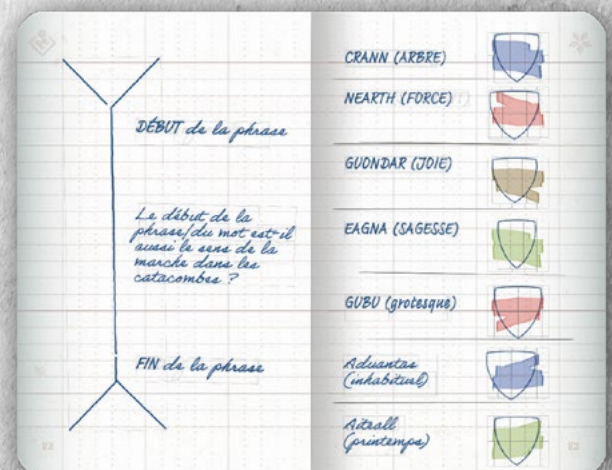 DÉBUT de la phrase
Le début de la
phrase/du mot est-il
aussi le sens de la
marche dans les
catacombes ?
FIN de la phrase
22
CRANN (ARBRE)
NEARTH (FORCE)
GUONDAR (JOIE)
EAGNA (SAGESSE)
GUBU (grotesque)
Aduantas
(inhabituel)
Aiteall
(printemps)
23